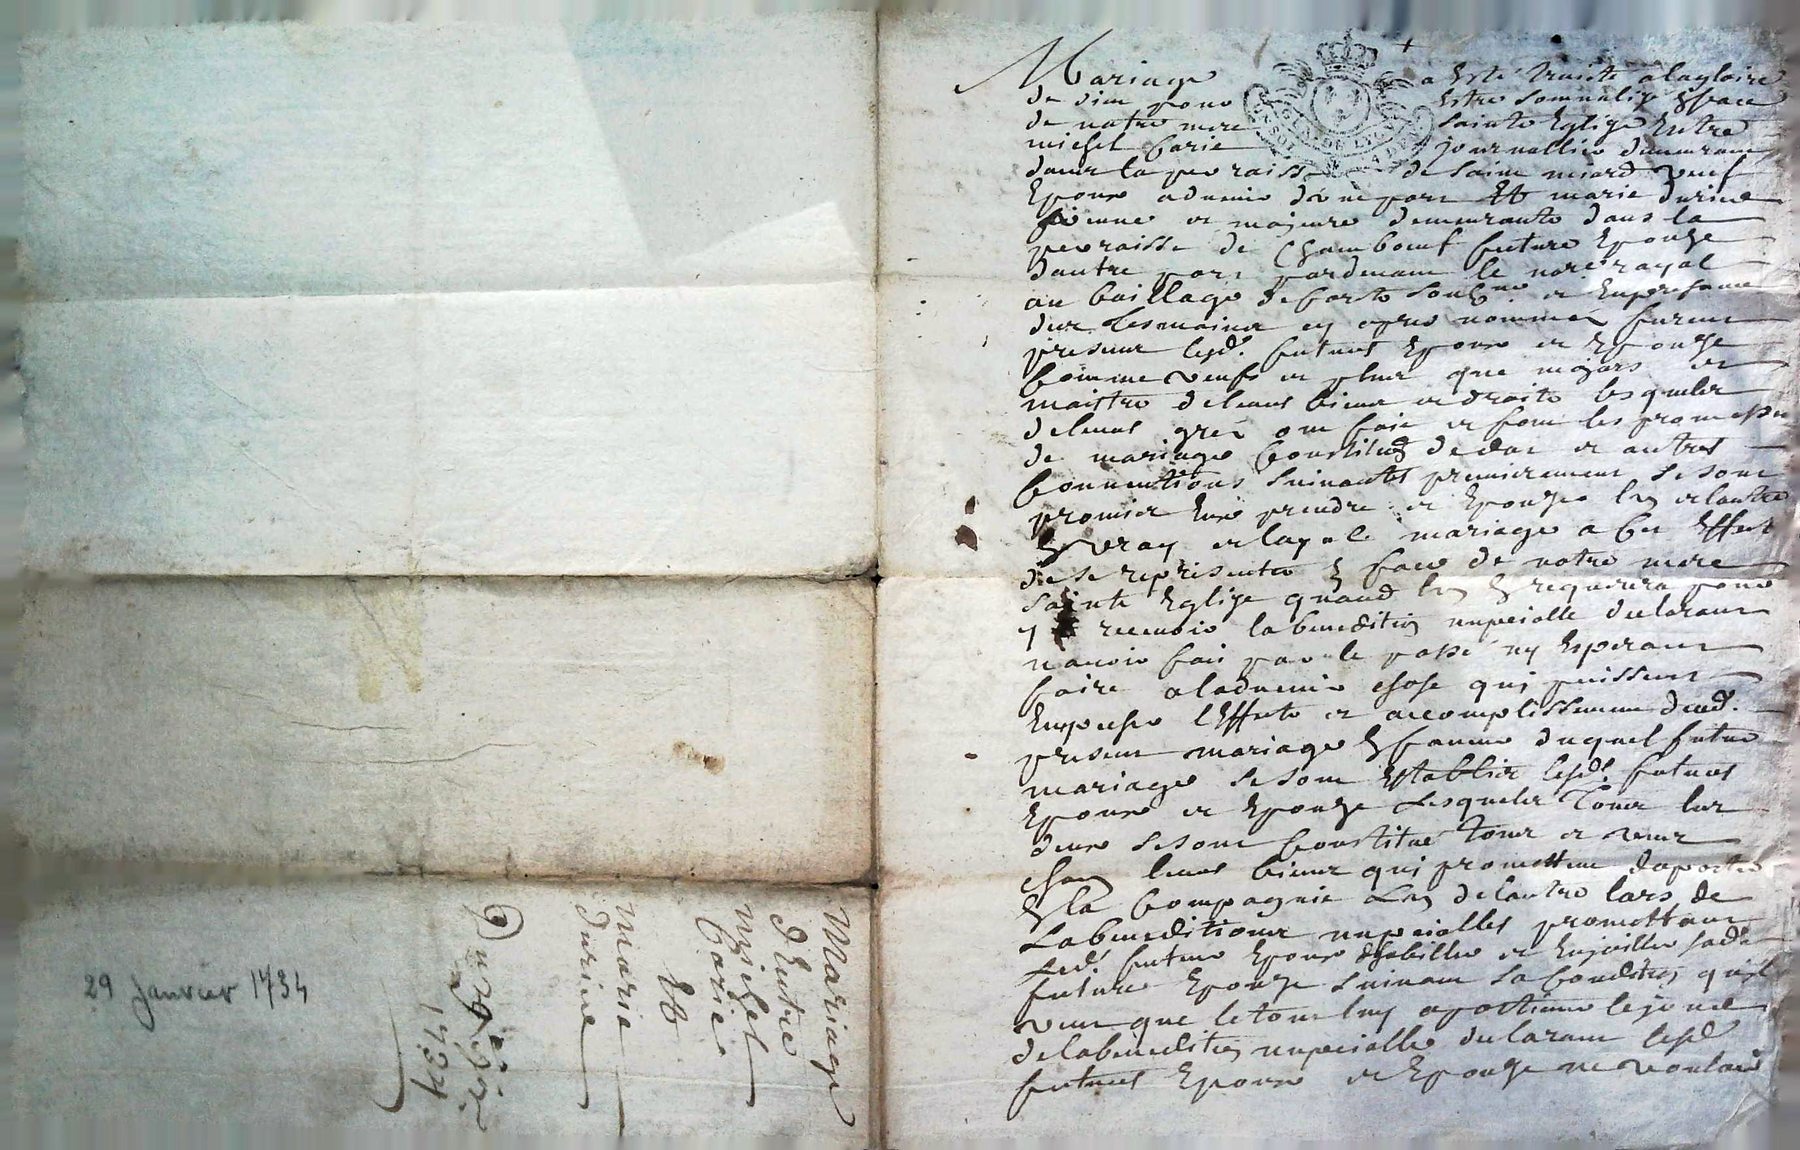 Mariage a Esté traitté alagloire
de dieu pour Estre Sollempnizé Eface
de notre mere Sainte Eglize Entre
michel Carie journallier demeurant
dans la paroisse de Saint miard veuf
Epoux advenir dune part Et marie durine
et majeure demeurante dans la
parroisse de Chambœuf future Epouze
dautre part pardevant le no.re royal
au baillage de et Enpresance
des tesmoins cy apres nommés furent
presens lesd. futurs Epoux et Epouze
Comme veufs et plus que majors et
maistre deleurs biens et droits lesquels
deleurs grés ont fait et font les promesses
de mariage Constitu͞o de dot et autres
Conventions Suivantes premierement Se sont
promis Eux prendre et Epouzer lun et lautre
En vray et loyale mariage a Cet Effect
de Se representer En face de notre mere
Sainte Eglize quand lun En requerera pour
y recevoir la benediction nupcialle declarant
navoir fait par le passé ny Esperant
faire aladvenir chose qui puissent
Empecher lEffects et accomplissement dud.
present mariage En faveur duquel futur
mariage Se sont Establir lesd. futurs
Epoux et Epouze Lesquels tous les
deux Se sont Constitué tous et uns
chacun leurs biens qui promettent daporter
En la Compagnie Lun delautre lors de
Labenedictions nupcialles promettant
Led. futur Epoux dhabiller et Enjoailler sad.
future Epouze Suivant Sa Condition
veut que letout luy apartienne lejour
delabenediction nupcialle declarant lesd.
futurs Epoux et Epouze ne vouloir
Mariage
dEntre
michel
Carie
Et
marie
durine
1734
29 Janvier 1734